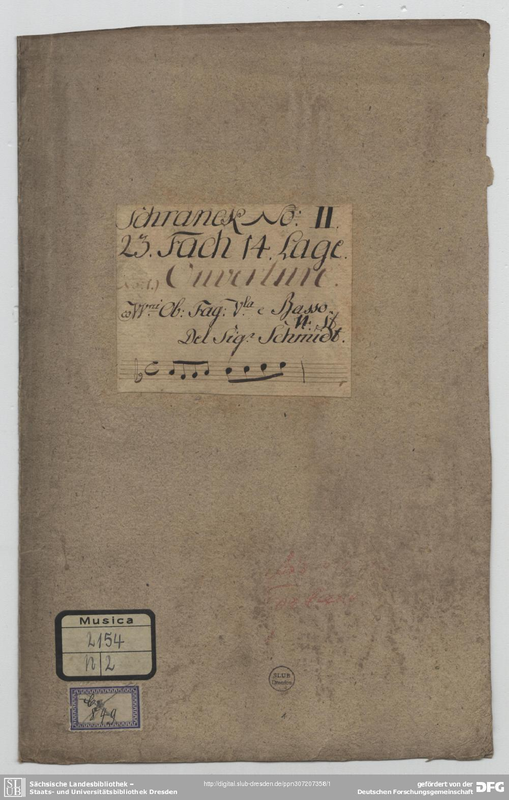 Schranck No: II.
23. Fach 14. Lage.
Ouverture.
co VVni Ob: Fag: Vla e Basso
Del Sigr Schmidt.
Musica
2154
N 2
899
SLUB
Dresden
SLUB
Sächsische Landesbibliothek –
Staats- und Universitätsbibliothek Dresden
http://digital.slub-dresden.de/ppn307207358/1
gefördert von der
Deutschen Forschungsgemeinschaft
DFG